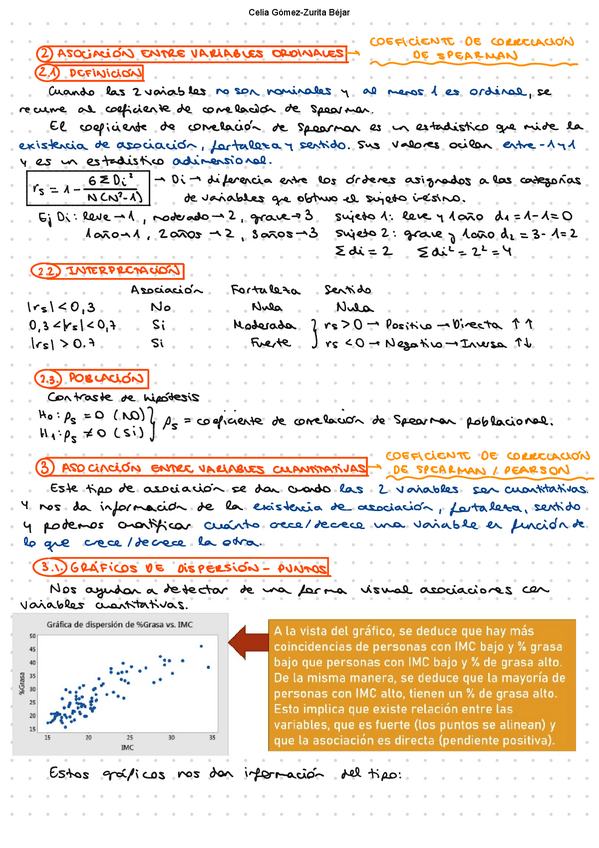 Celia Gómez-Zurita Béjar
② ASOCIACIÓN ENTRE VARIABLES ORDINALES → COEFICIENTE DE CORRELACIÓN
DE SPEARMAN
2.1) DEFINICIÓN
Cuando las 2 variables no son nominales y al menos 1 es ordinal, se
recurre al coeficiente de correlación de Spearman.
El coeficiente de correlación de Spearman es un estadístico que mide la
existencia de asociación, fortaleza y sentido. Sus valores ocilan entre -1 y 1
y es un estadístico adimensional.
rs = 1 - 6 Σ Di² / N(N²-1) → Di → diferencia entre los órderes asignados a las categorías
de variables que obtuvo el sujeto iésimo.
Ej Di: leve → 1, moderado → 2, grave → 3 sujeto 1: leve y 1 año d1 = 1-1 = 0
1 año → 1, 2 años → 2, 3 años → 3 sujeto 2: grave y 1 año d2 = 3-1 = 2
Σ di = 2 Σ di² = 2² = 4
2.2) INTERPRETACIÓN
Asociación Fortaleza Sentido
|rs| < 0,3 No Nula Nula
0,3 < |rs| < 0,7 Si Moderada } rs > 0 → Positivo → Directa ↑↑
|rs| > 0.7 Si Fuerte } rs < 0 → Negativo → Inversa ↑↓
2.3.) POBLACIÓN
Contraste de hipótesis
H0: ρs = 0 (NO) }
H1: ρs ≠ 0 (Si) } ρs = coeficiente de correlación de Spearman poblacional.
③ ASOCIACIÓN ENTRE VARIABLES CUANTITATIVAS → COEFICIENTE DE CORRELACIÓN
DE SPEARMAN / PEARSON
Este tipo de asociación se dan cuando las 2 variables son cuantitativas
y nos da información de la existencia de asociación, fortaleza, sentido
y podemos cuantificar cuánto crece/decrece una variable en función de
lo que crece/decrece la otra.
3.1.) GRÁFICOS DE DISPERSIÓN - PUNTOS
Nos ayudan a detectar de una forma visual asociaciones con
variables cuantitativas.
Gráfica de dispersión de %Grasa vs. IMC
50
45
40
35
30
25
20
15
%Grasa
15 20 25 30 35
IMC
A la vista del gráfico, se deduce que hay más
coincidencias de personas con IMC bajo y % grasa
bajo que personas con IMC bajo y % de grasa alto.
De la misma manera, se deduce que la mayoría de
personas con IMC alto, tienen un % de grasa alto.
Esto implica que existe relación entre las
variables, que es fuerte (los puntos se alinean) y
que la asociación es directa (pendiente positiva).
Estos gráficos nos dan información del tipo: